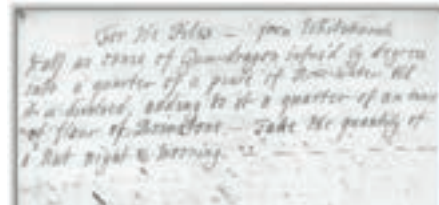 For the Piles — from Whitworth
Half an ounce of Gumdragon infus'd by degrees
into a quarter of a pint of Rosewater till
it is dissolved, adding to it a quarter of an ounce
of flour of Brimstone — Take the quantity of
a Nut night & Morning.